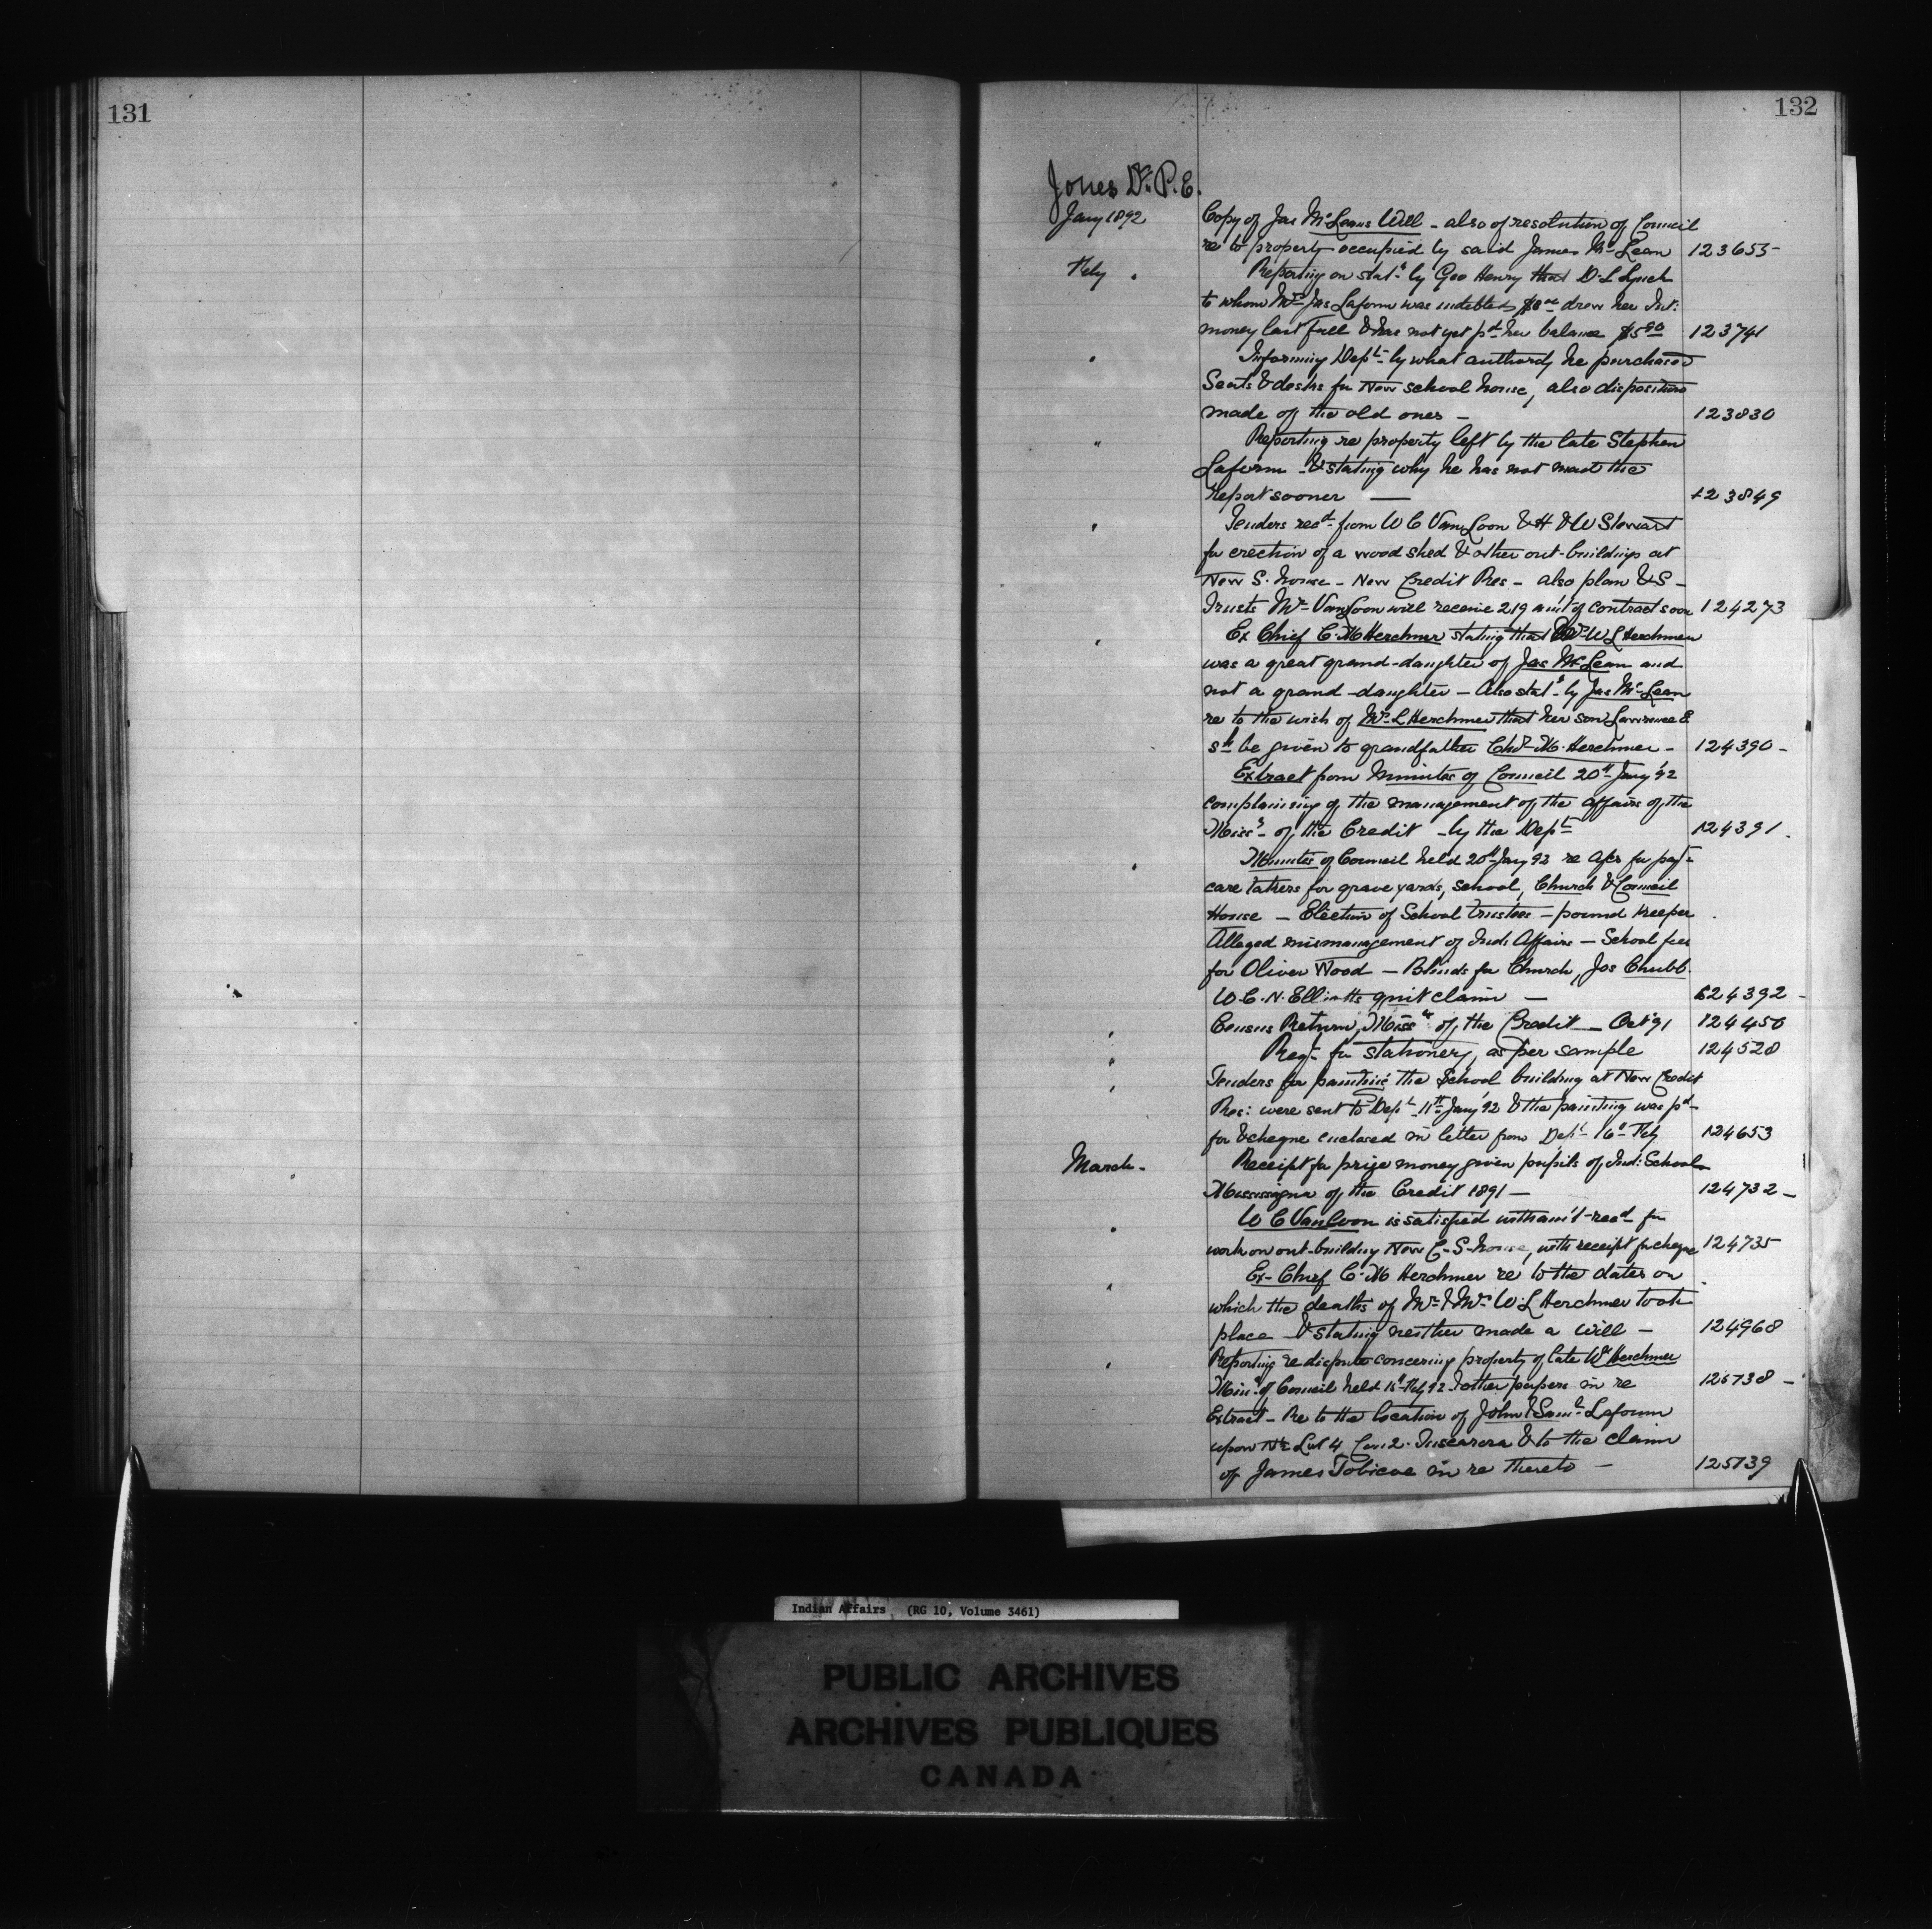 131
132
Jones Dr. P.E.
Jany 1892 Copy of Jas McLeans Will - also of resolution of Council
re to property occupied by said James McLean 123655-
Feby " Reporting on stat. by Geo Henry that D. L Lynch
to whom Mrs Jas Laform was indebted drew her Int:
money last fall & has not yet pd her balance $5.90 123741
" Informing Dept. by what authority he purchased
Seats & desks for New school house, also disposition
made of the old ones - 123830
" Reporting re property left by the late Stephen
Laform - & stating why he has not made the
report sooner — 123849
" Tenders recd from W C VanLoon & H & W Stewart
for erection of a wood shed & other out-buildings at
New S. house - New Credit Res - also plan & S -
Trusts Mr VanLoon will receive 219 am't of contract soon 124273
" Ex Chief C. M Herchmer stating that Mrs W L Herchmer
was a great grand-daughter of Jas McLean and
not a grand-daughter - Also stat. by Jas McLean
re to the wish of Mrs L Herchmer that her son Lawrence E
sh be given to grandfather Chas M. Herchmer - 124390 -
Extract from Minutes of Council 20th Jany '92
complaining of the management of the affairs of the
Miss's of the Credit - by the Dept 124391.
" Minutes of Council held 20th Jany 92 re for pay
care takers for grave yards, school, Church & Council
House - Election of School trustees - pound keeper
Alleged mismanagement of Ind. Affairs - School fees
for Oliver Wood - Blinds for Church, Jos Chubb
W. C. N. Elliotts quit claim — 124392 -
" Census Return, Miss of the Credit - Oct 91 124450
" Reqn for stationery, as per sample 124528
" Tenders for painting the School building at New Credit
Res: were sent to Dept 11th Jany '92 & the painting was pd
for & cheque enclosed in letter from Dept 16th Feby 124653
March - Receipt for prize money given pupils of Ind: School
Mississagua of the Credit 1891 - 124732 -
" W C VanLoon is satisfied with am't recd for
work on out-building New C. S-house, with receipt for cheque 124735
" Ex-Chief C. M Herchmer re to the dates on
which the deaths of Mr & Mrs W. L Herchmer took
place - & stating neither made a Will - 124968
" Reporting re dispute concerning property of late Wm Herchmer
Min. of Council held Feby 92 & other papers in re 125738 -
Extract - Re to the location of John & Saml Laform
upon Lot 4 Con 2. Tuscarora & to the claim
of James Tobicoe in re thereto - 125739
Indian Affairs (RG 10, Volume 3461)
PUBLIC ARCHIVES
ARCHIVES PUBLIQUES
CANADA